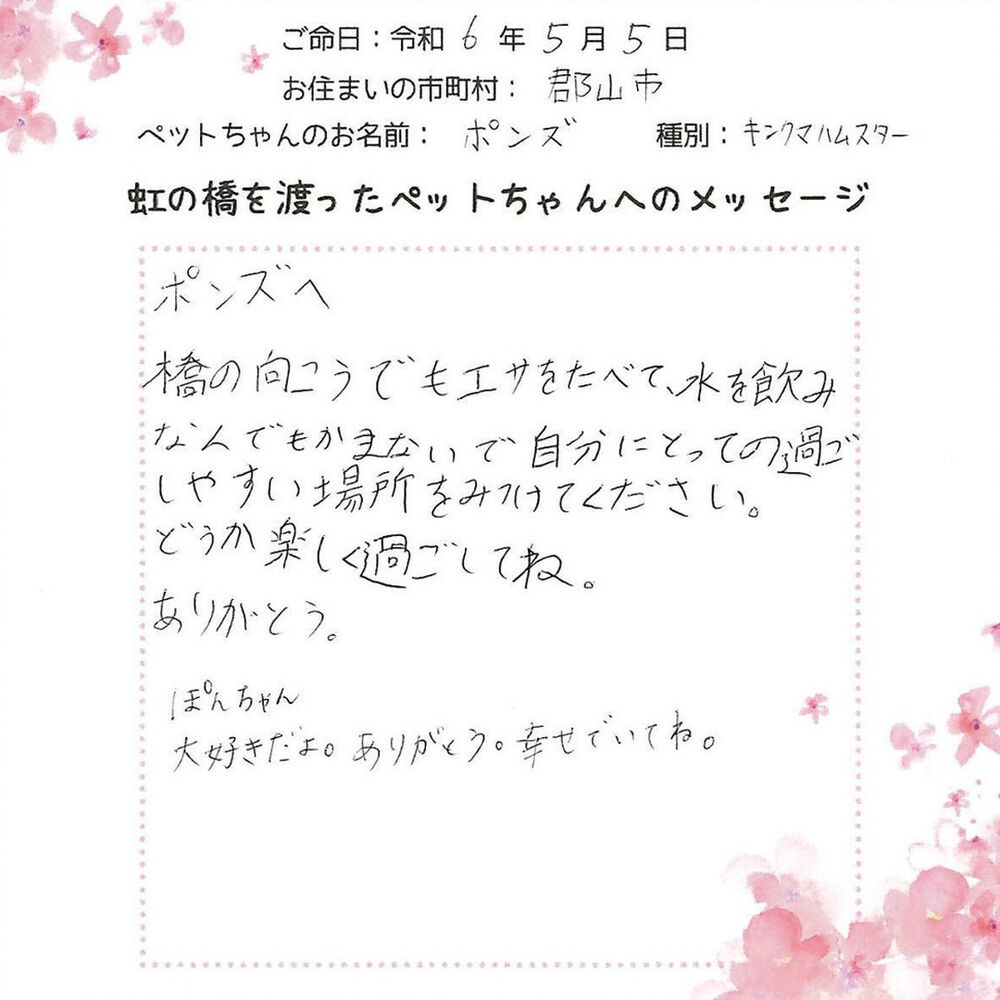 ご命日：令和 6 年 5 月 5 日
お住まいの市町村： 郡山市
ペットちゃんのお名前： ポンズ 種別：キンクマハムスター
虹の橋を渡ったペットちゃんへのメッセージ
ポンズへ
橋の向こうでもエサをたべて、水を飲み
なんでもかまないで自分にとっての過ご
しやすい場所をみつけてください。
どうか楽しく過ごしてね。
ありがとう。
ぽんちゃん
大好きだよ。ありがとう。幸せでいてね。